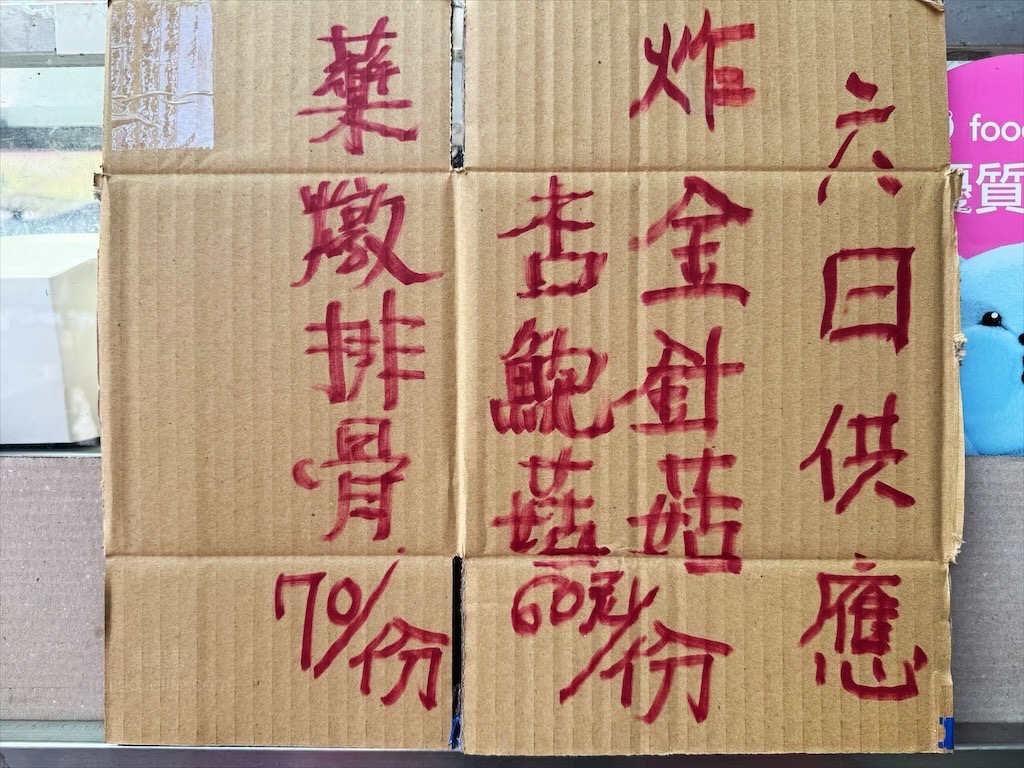 六日供應
炸金針菇
杏鮑菇
60元/份
藥燉排骨
70/份
foo
優質